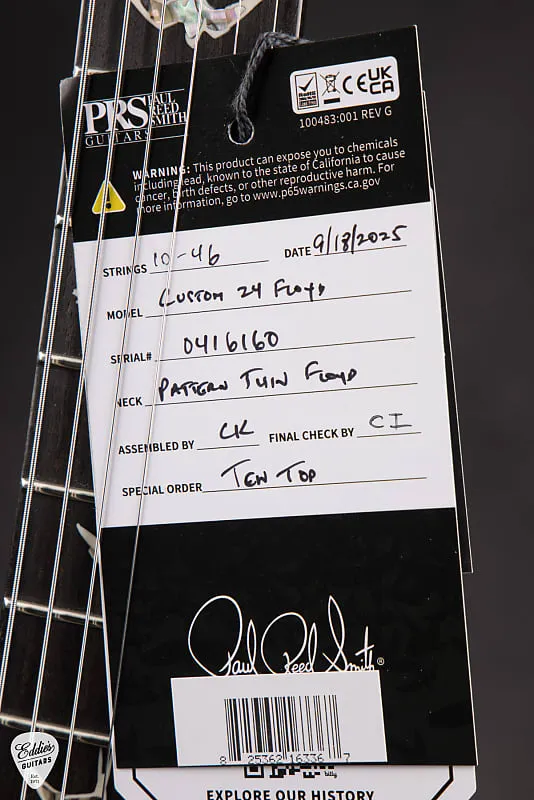 PRS PAUL REED SMITH
GUITARS
CE UK CA
100483:001 REV G
WARNING: This product can expose you to chemicals
including lead, known to the state of California to cause
cancer, birth defects, or other reproductive harm. For
more information, go to www.p65warnings.ca.gov
STRINGS 10-46 DATE 9/18/2025
MODEL Custom 24 Floyd
SERIAL# 0416160
NECK Pattern Thin Floyd
ASSEMBLED BY CK FINAL CHECK BY CI
SPECIAL ORDER Ten Top
Paul Reed Smith®
8 25362 16336 7
EXPLORE OUR HISTORY
Eddie's
GUITARS